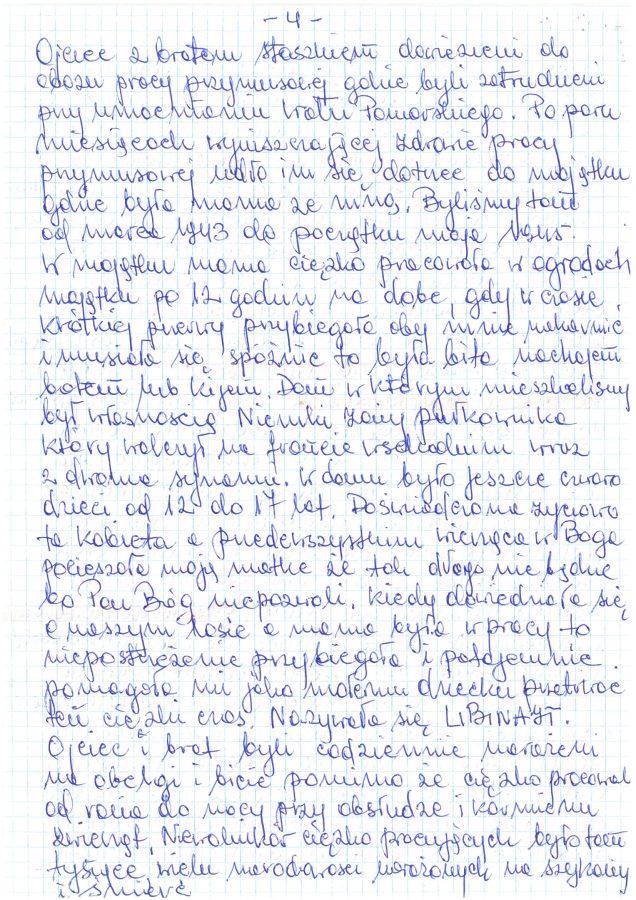 - 4 -
Ojciec z bratem Staszkiem dowiezieni do
obozu pracy przymusowej gdzie byli zatrudnieni
przy umocnieniu Wału Pomorskiego. Po paru
miesiącach wyniszczającej zdrowie pracy
przymusowej udało im się dotrzeć do majątku
gdzie była mama ze mną. Byliśmy tam
od marca 1943 do początku maja 1945.
W majątku mama ciężko pracowała w ogrodach
majątku po 12 godzin na dobę, gdy w czasie
krótkiej przerwy przybiegała aby mnie nakarmić
i musiała się spóźnić to była bita
batem lub kijem. Dom w którym mieszkaliśmy
był własnością Niemki żony pułkownika
który walczył na froncie wschodnim wraz
z dwoma synami. W domu było jeszcze czworo
dzieci od 12 do 17 lat. Doświadczona życiowo
ta kobieta a przedewszystkim wierząca w Boga
pocieszała moją matkę że tak długo nie będzie
bo Pan Bóg niepozwoli. Kiedy dowiedziała się
o naszym losie a mama była w pracy to
niepostrzeżenie przybiegała i potajemnie
pomagała mi jako małemu dziecku przetrwać
ten ciężki czas. Nazywała się LIBINAJT.
Ojciec i brat byli codziennie narażeni
na obelgi i bicie pomimo że ciężko pracowal
od rana do nocy przy obsłudze i karmieniu
zwierząt. Niewolników ciężko pracujących było tam
tysiące wielu narodowości narażonych na szykany
i śmierć